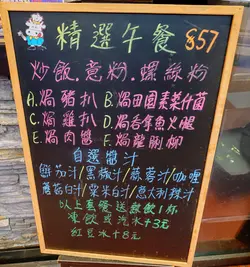 精選午餐 $57
炒飯.意粉.螺絲粉
A.焗豬扒 B.焗田園素菜什菌
C.焗雞扒 D.焗吞拿魚火腿
E.焗肉醬 F.焗
自選醬汁
鮮茄汁/黑椒汁/蒜蓉汁/咖喱
蘑菇白汁/粟米白汁/意大利辣汁
以上套餐送熱飲1杯
凍飲或汽水+3元
紅豆冰+8元